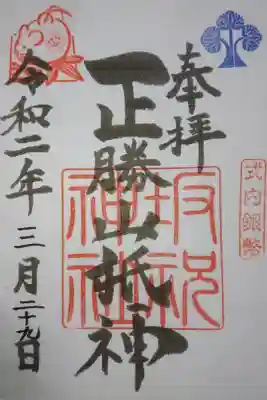 奉拝
正勝山祇神
令和二年三月二十九日
坂祝
神社
式内銀幣